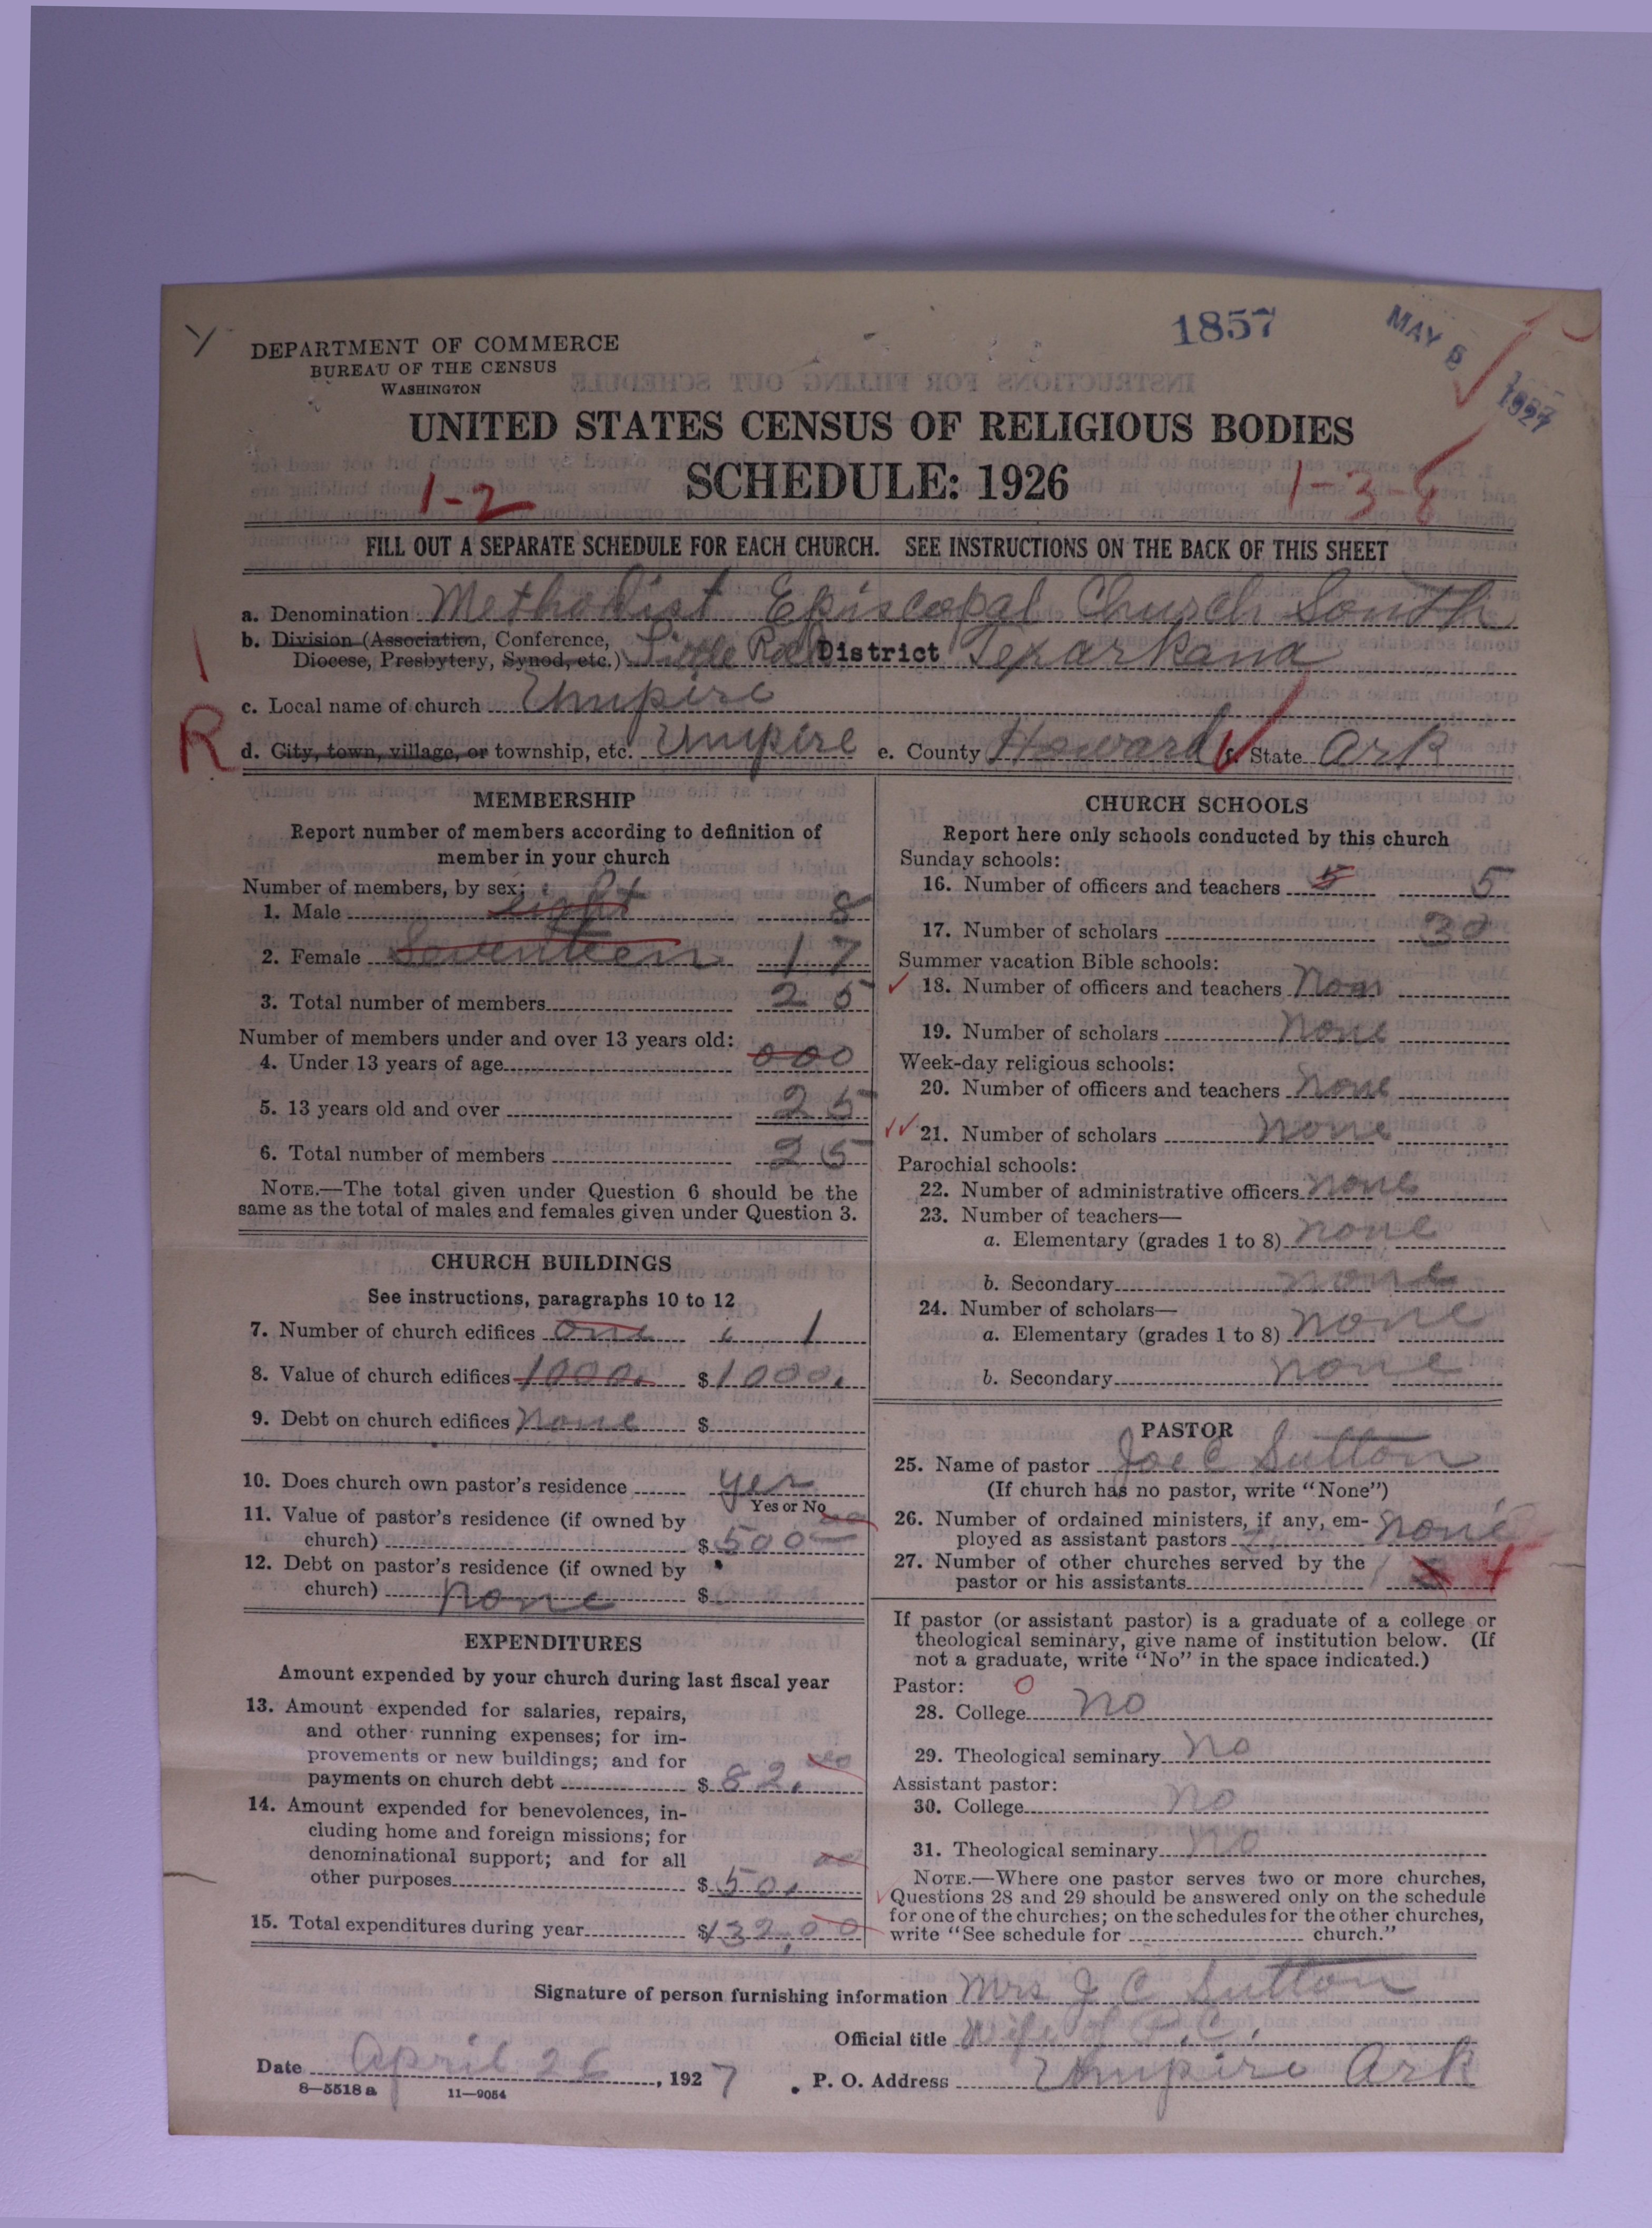 1857
MAY 5 1927
DEPARTMENT OF COMMERCE
BUREAU OF THE CENSUS
WASHINGTON
UNITED STATES CENSUS OF RELIGIOUS BODIES
SCHEDULE: 1926
1-2
1-3-8
FILL OUT A SEPARATE SCHEDULE FOR EACH CHURCH. SEE INSTRUCTIONS ON THE BACK OF THIS SHEET
a. Denomination Methodist Episcopal Church South
b. Division (Association, Conference,
Diocese, Presbytery, Synod, etc.) Little Rock District Texarkana
c. Local name of church Umpire
R
d. City, town, village, or township, etc. Umpire e. County Howard f. State Ark
MEMBERSHIP
Report number of members according to definition of
member in your church
Number of members, by sex:
1. Male eight 8
2. Female Seventeen 17
3. Total number of members 25
Number of members under and over 13 years old:
4. Under 13 years of age 000
5. 13 years old and over 25
6. Total number of members 25
NOTE.—The total given under Question 6 should be the
same as the total of males and females given under Question 3.
CHURCH BUILDINGS
See instructions, paragraphs 10 to 12
7. Number of church edifices one 1
8. Value of church edifices 1000. $1000.
9. Debt on church edifices none $
10. Does church own pastor's residence yes
Yes or No
11. Value of pastor's residence (if owned by
church) $500
12. Debt on pastor's residence (if owned by
church) none $
EXPENDITURES
Amount expended by your church during last fiscal year
13. Amount expended for salaries, repairs,
and other running expenses; for im-
provements or new buildings; and for
payments on church debt $82.00
14. Amount expended for benevolences, in-
cluding home and foreign missions; for
denominational support; and for all
other purposes $50.00
15. Total expenditures during year $132.00
CHURCH SCHOOLS
Report here only schools conducted by this church
Sunday schools:
16. Number of officers and teachers 5 5
17. Number of scholars 30
Summer vacation Bible schools:
18. Number of officers and teachers None
19. Number of scholars none
Week-day religious schools:
20. Number of officers and teachers none
21. Number of scholars none
Parochial schools:
22. Number of administrative officers none
23. Number of teachers—
a. Elementary (grades 1 to 8) none
b. Secondary none
24. Number of scholars—
a. Elementary (grades 1 to 8) none
b. Secondary none
PASTOR
25. Name of pastor Joe C Sutton
(If church has no pastor, write "None")
26. Number of ordained ministers, if any, em-
ployed as assistant pastors none
27. Number of other churches served by the
pastor or his assistants 4
If pastor (or assistant pastor) is a graduate of a college or
theological seminary, give name of institution below. (If
not a graduate, write "No" in the space indicated.)
Pastor: 0
28. College no
29. Theological seminary no
Assistant pastor:
30. College no
31. Theological seminary no
NOTE.—Where one pastor serves two or more churches,
Questions 28 and 29 should be answered only on the schedule
for one of the churches; on the schedules for the other churches,
write "See schedule for church."
Signature of person furnishing information Mrs J C Sutton
Official title Wife of P.C.
Date April 26, 1927 P. O. Address Umpire Ark
8—5518 a 11—9054